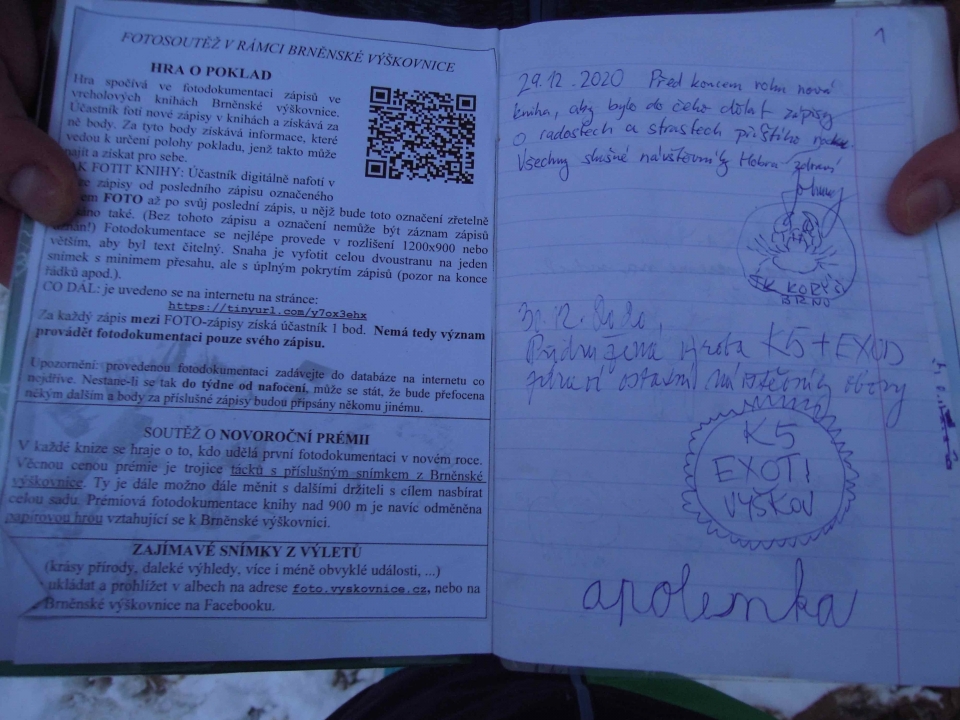 FOTOSOUTĚŽ V RÁMCI BRNĚNSKÉ VÝŠKOVNICE
HRA O POKLAD
Hra spočívá ve fotodokumentaci zápisů ve
vrcholových knihách Brněnské výškovnice.
Účastník fotí nové zápisy v knihách a získává za
ně body. Za tyto body získává informace, které
vedou k určení polohy pokladu, jenž takto může
najít a získat pro sebe.
JAK FOTIT KNIHY: Účastník digitálně nafotí v
zápisy od posledního zápisu označeného
FOTO až po svůj poslední zápis, u nějž bude toto označení zřetelně
také. (Bez tohoto zápisu a označení nemůže být záznam zápisů
Fotodokumentace se nejlépe provede v rozlišení 1200x900 nebo
větším, aby byl text čitelný. Snaha je vyfotit celou dvoustranu na jeden
snímek s minimem přesahu, ale s úplným pokrytím zápisů (pozor na konce
řádků apod.).
CO DÁL: je uvedeno se na internetu na stránce:
https://tinyurl.com/y7ox3ehx
Za každý zápis mezi FOTO-zápisy získá účastník 1 bod. Nemá tedy význam
provádět fotodokumentaci pouze svého zápisu.
Upozornění: provedenou fotodokumentaci zadávejte do databáze na internetu co
nejdříve. Nestane-li se tak do týdne od nafocení, může se stát, že bude přefocena
někým dalším a body za příslušné zápisy budou připsány někomu jinému.
SOUTĚŽ O NOVOROČNÍ PRÉMII
V každé knize se hraje o to, kdo udělá první fotodokumentaci v novém roce.
Věcnou cenou prémie je trojice tácků s příslušným snímkem z Brněnské
výškovnice. Ty je dále možno dále měnit s dalšími držiteli s cílem nasbírat
celou sadu. Prémiová fotodokumentace knihy nad 900 m je navíc odměněna
papírovou hrou vztahující se k Brněnské výškovnici.
ZAJÍMAVÉ SNÍMKY Z VÝLETŮ
(krásy přírody, daleké výhledy, více i méně obvyklé události, ...)
ukládat a prohlížet v albech na adrese foto.vyskovnice.cz, nebo na
Brněnské výškovnice na Facebooku.
1
29.12.2020 Před koncem roku nová
kniha, aby bylo do čeho dělat zápisy
o radostech a strastech příštího roku.
Všechny slušné návštěvníky zdraví
TK KORÝŠ
BRNO
30.12.2020,
K5 + EXOTI
zdraví ostatní návštěvníky
K5
EXOTI
VYŠKOV
apolenka